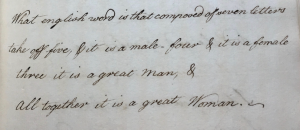 What english word is that composed of seven letters
take off five & it is a male - four & it is a female
three it is a great Man, &
all together it is a great Woman.